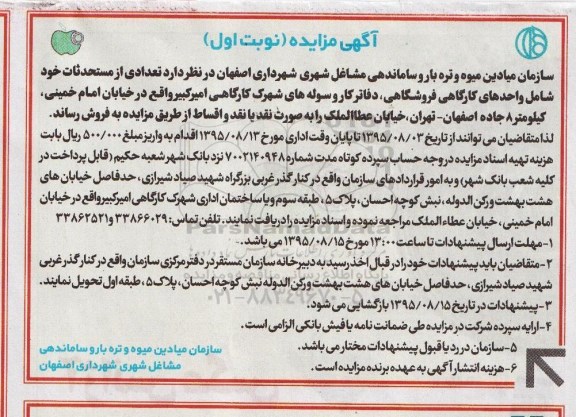 آگهی مزایده (نوبت اول)
سازمان میادین میوه و تره بار و ساماندهی مشاغل شهری شهرداری اصفهان در نظر دارد تعدادی از مستحدثات خود
شامل واحدهای کارگاهی فروشگاهی، دفاتر کار و سوله های شهرک کارگاهی امیرکبیر واقع در خیابان امام خمینی،
کیلومتر ۸ جاده اصفهان - تهران، خیابان عطاالملک را به صورت نقد یا نقد و اقساط از طریق مزایده به فروش رساند.
لذا متقاضیان می توانند از تاریخ ۱۳۹۵/۰۸/۰۳ تا پایان وقت اداری مورخ ۱۳۹۵/۰۸/۱۳ اقدام به واریز مبلغ ۵۰۰/۰۰۰ ریال بابت
هزینه تهیه اسناد مزایده در وجه حساب سپرده کوتاه مدت شماره ۷۰۰۲۱۴۰۹۴۸ نزد بانک شهر شعبه حکیم (قابل پرداخت در
کلیه شعب بانک شهر) و به امور قراردادهای سازمان واقع در کنار گذر غربی بزرگراه شهید صیاد شیرازی، حدفاصل خیابان های
هشت بهشت و رکن الدوله، نبش کوچه احسان، پلاک ۵، طبقه سوم و یا ساختمان اداری شهرک کارگاهی امیرکبیر واقع در خیابان
امام خمینی، خیابان عطاء الملک مراجعه نموده و اسناد مزایده را دریافت نمایند. تلفن تماس: ۳۳۸۶۶۰۲۹ و ۳۳۸۶۲۵۲۱
۱- مهلت ارسال پیشنهادات تا ساعت ۱۳:۰۰ مورخ ۱۳۹۵/۰۸/۱۵ می باشد.
۲- متقاضیان باید پیشنهادات خود را در قبال اخذ رسید به دبیرخانه سازمان مستقر در دفتر مرکزی سازمان واقع در کنار گذر غربی
شهید صیاد شیرازی، حدفاصل خیابان های هشت بهشت و رکن الدوله نبش کوچه احسان، پلاک ۵، طبقه اول تحویل نمایند.
۳- پیشنهادات در تاریخ ۱۳۹۵/۰۸/۱۵ بازگشایی می شود.
۴- ارایه سپرده شرکت در مزایده طی ضمانت نامه یا فیش بانکی الزامی است.
۵- سازمان در رد یا قبول پیشنهادات مختار می باشد.
۶- هزینه انتشار آگهی به عهده برنده مزایده است.
سازمان میادین میوه و تره بار و ساماندهی
مشاغل شهری شهرداری اصفهان
ParsNamadData
۰۲۱-۸۸۳۴۹۶۷۰-۵